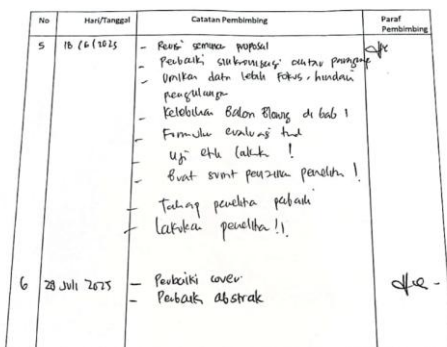 No Hari/Tanggal Catatan Pembimbing Paraf Pembimbing
5 18/6/2025 - Revisi seminar proposal
- Perbaiki sinkronisasi antar
- Uraikan data lebih fokus, hindari
pengulangan
- Kelebihan Balon Blowing di bab 1
- Formulir evaluasi
- Uji etik lakuk !
- Buat surat penelitian !
- Tahap penelitia pabaiki
- Lakukan penelitia !!
6 28 Juli 2025 - Perbaiki cover
- Perbaiki abstrak